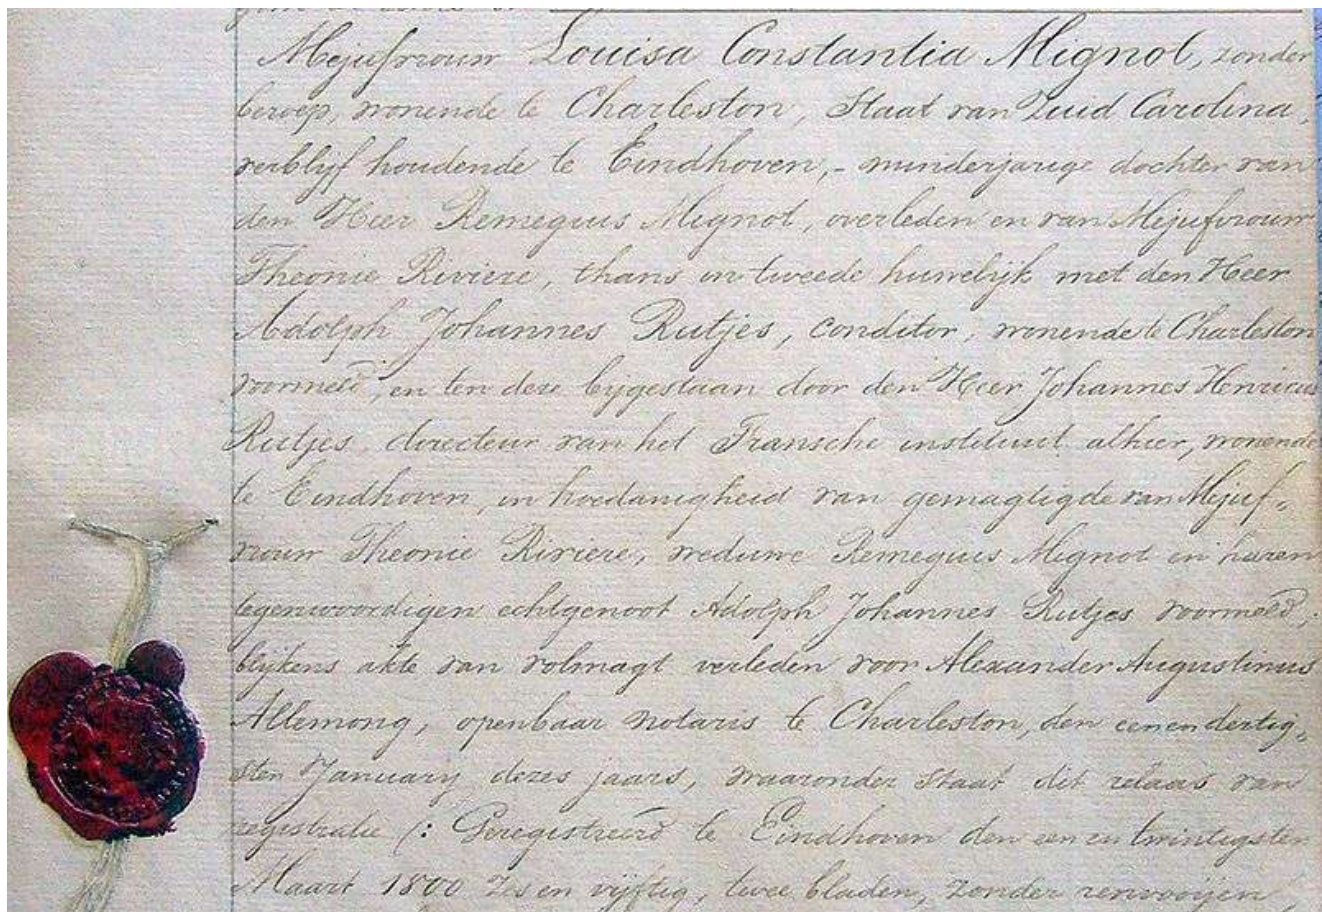 Mejufvrouw Louisa Constantia Mignot, zonder
beroep, wonende te Charleston, Staat van Zuid Carolina,
verblyf houdende te Eindhoven,- minderjarige dochter van
den Heer Remegius Mignot, overleden en van Mejufvrouw
Theonie Riviere, thans in tweede huwelijk met den Heer
Adolph Johannes Rutjes, conditor, wonende te Charleston
voormeld, en ten deze bijgestaan door den Heer Johannes Henricus
Rutjes, directeur van het Fransche instituut alhier, wonende
te Eindhoven, in hoedanigheid van gemagtigde van Mejuf„
vrouw Theonie Riviere, weduwe Remegius Mignot en haren
tegenwoordigen echtgenoot Adolph Johannes Rutjes voormeld,
blijkens akte van volmagt verleden voor Alexander Augustinus
Allemong, openbaar notaris te Charleston, den eenendertig„
sten January dezes jaars, waaronder staat dit relaas van
registratie (: Geregistreerd te Eindhoven den een en twintigsten
Maart 1800 zes en vijftig, twee bladen, zonder renvooijen,